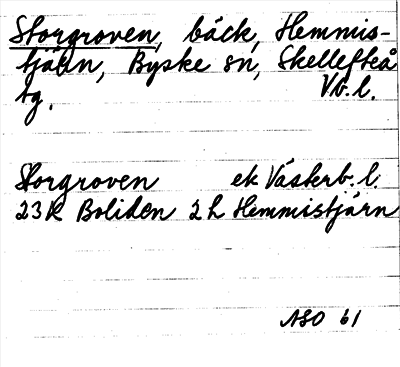 Storgroven, bäck, Hemmis-
tjärn, Byske sn, Skellefteå
tg. Vb. l.
Storgroven ek Västerb. l.
23K Boliden 2h Hemmistjärn
ASO 61